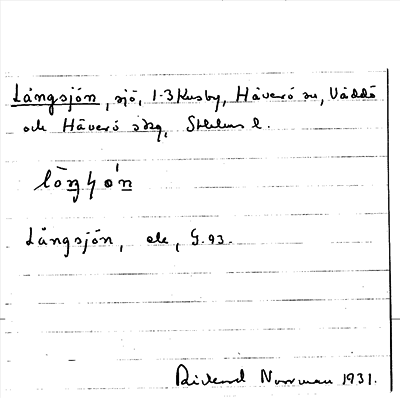 Långsjön, sjö, 1-3 Kusby, Häverö sn, Väddö
och Häverö skg, Sthlms l.
Långsjön, ek, G.93.
Rickard Norrman 1931.